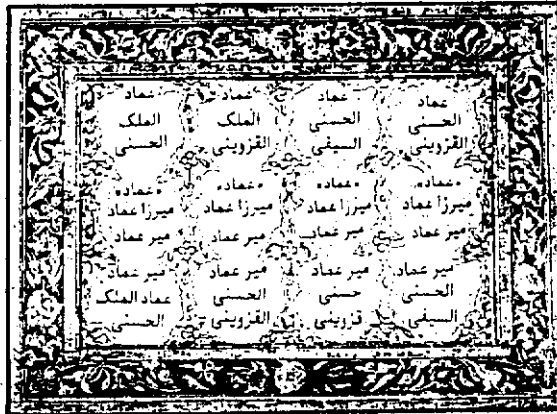 عماد
الحسني
القزويني
عماد
الحسني
السيفي
عماد
الملك
القزويني
عماد
الملك
الحسني
•عماد•
ميرزا عماد
مير عماد
•عماد•
ميرزا عماد
مير عماد
•عماد•
ميرزا عماد
مير عماد
•عماد•
ميرزا عماد
مير عماد
مير عماد
الحسني
السيفي
مير عماد
حسني
قزويني
مير عماد
الحسني
القزويني
مير عماد
عماد الملك
الحسني